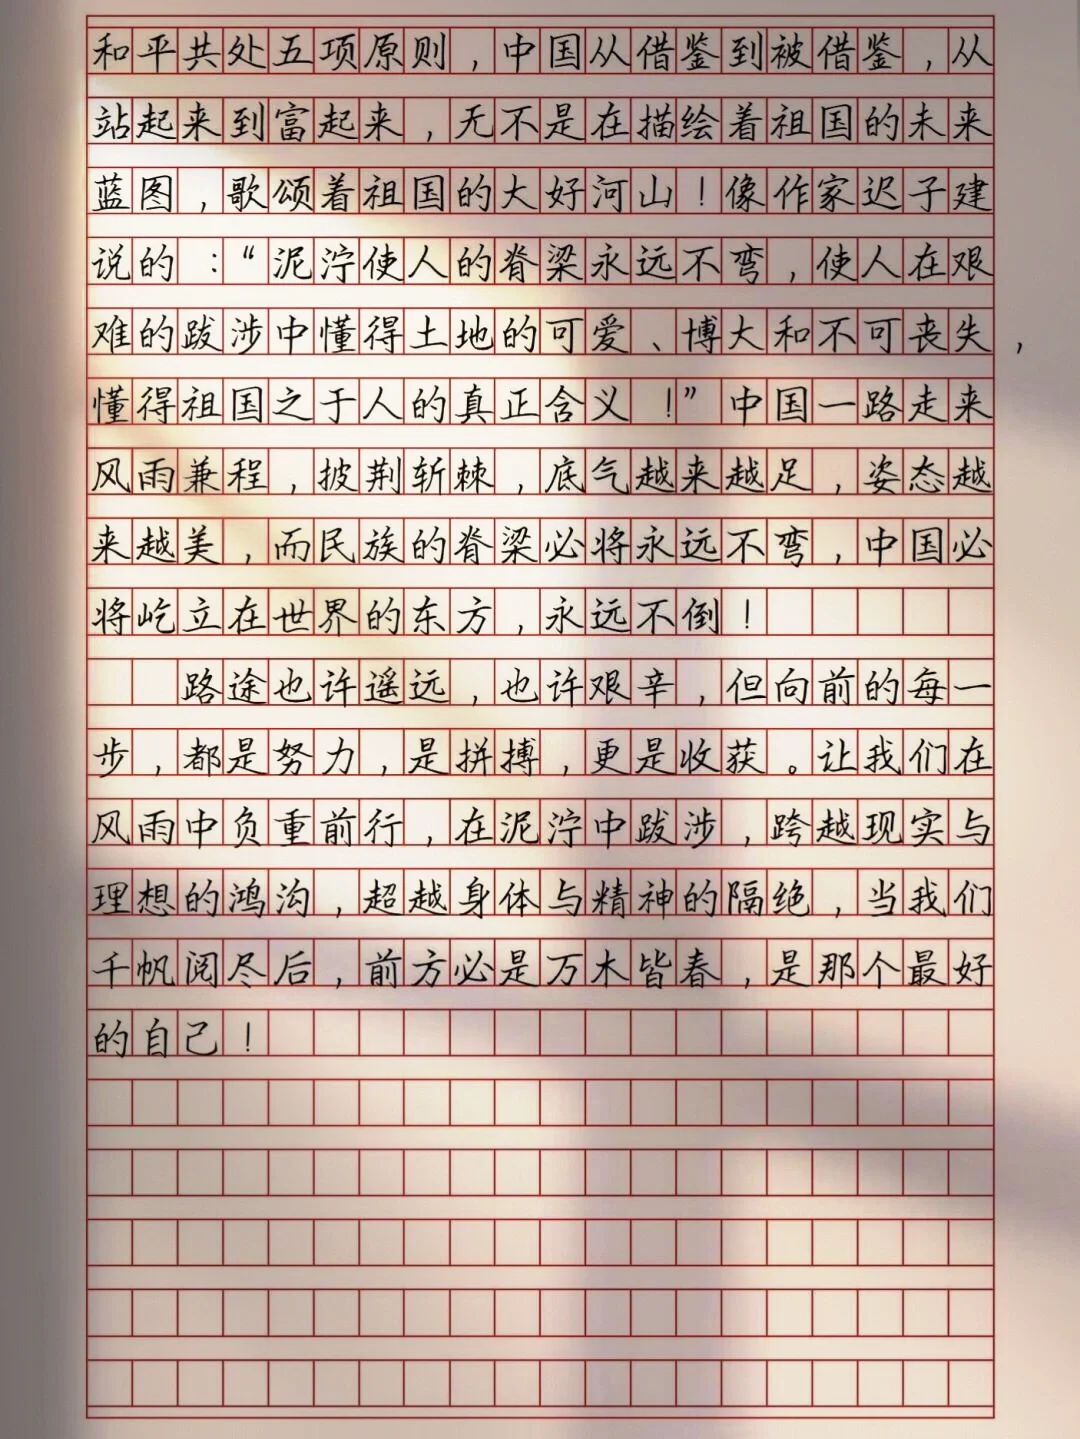 和平共处五项原则，中国从借鉴到被借鉴，从
站起来到富起来，无不是在描绘着祖国的未来
蓝图，歌颂着祖国的大好河山！像作家迟子建
说的：“泥泞使人的脊梁永远不弯，使人在艰
难的跋涉中懂得土地的可爱、博大和不可丧失，
懂得祖国之于人的真正含义！”中国一路走来
风雨兼程，披荆斩棘，底气越来越足，姿态越
来越美，而民族的脊梁必将永远不弯，中国必
将屹立在世界的东方，永远不倒！
路途也许遥远，也许艰辛，但向前的每一
步，都是努力，是拼搏，更是收获。让我们在
风雨中负重前行，在泥泞中跋涉，跨越现实与
理想的鸿沟，超越身体与精神的隔绝，当我们
千帆阅尽后，前方必是万木皆春，是那个最好
的自己！